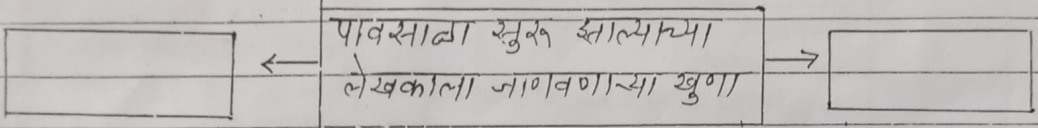 पावसाळा सुरू झाल्याच्या
लेखकाला जाणवणाऱ्या खुणा